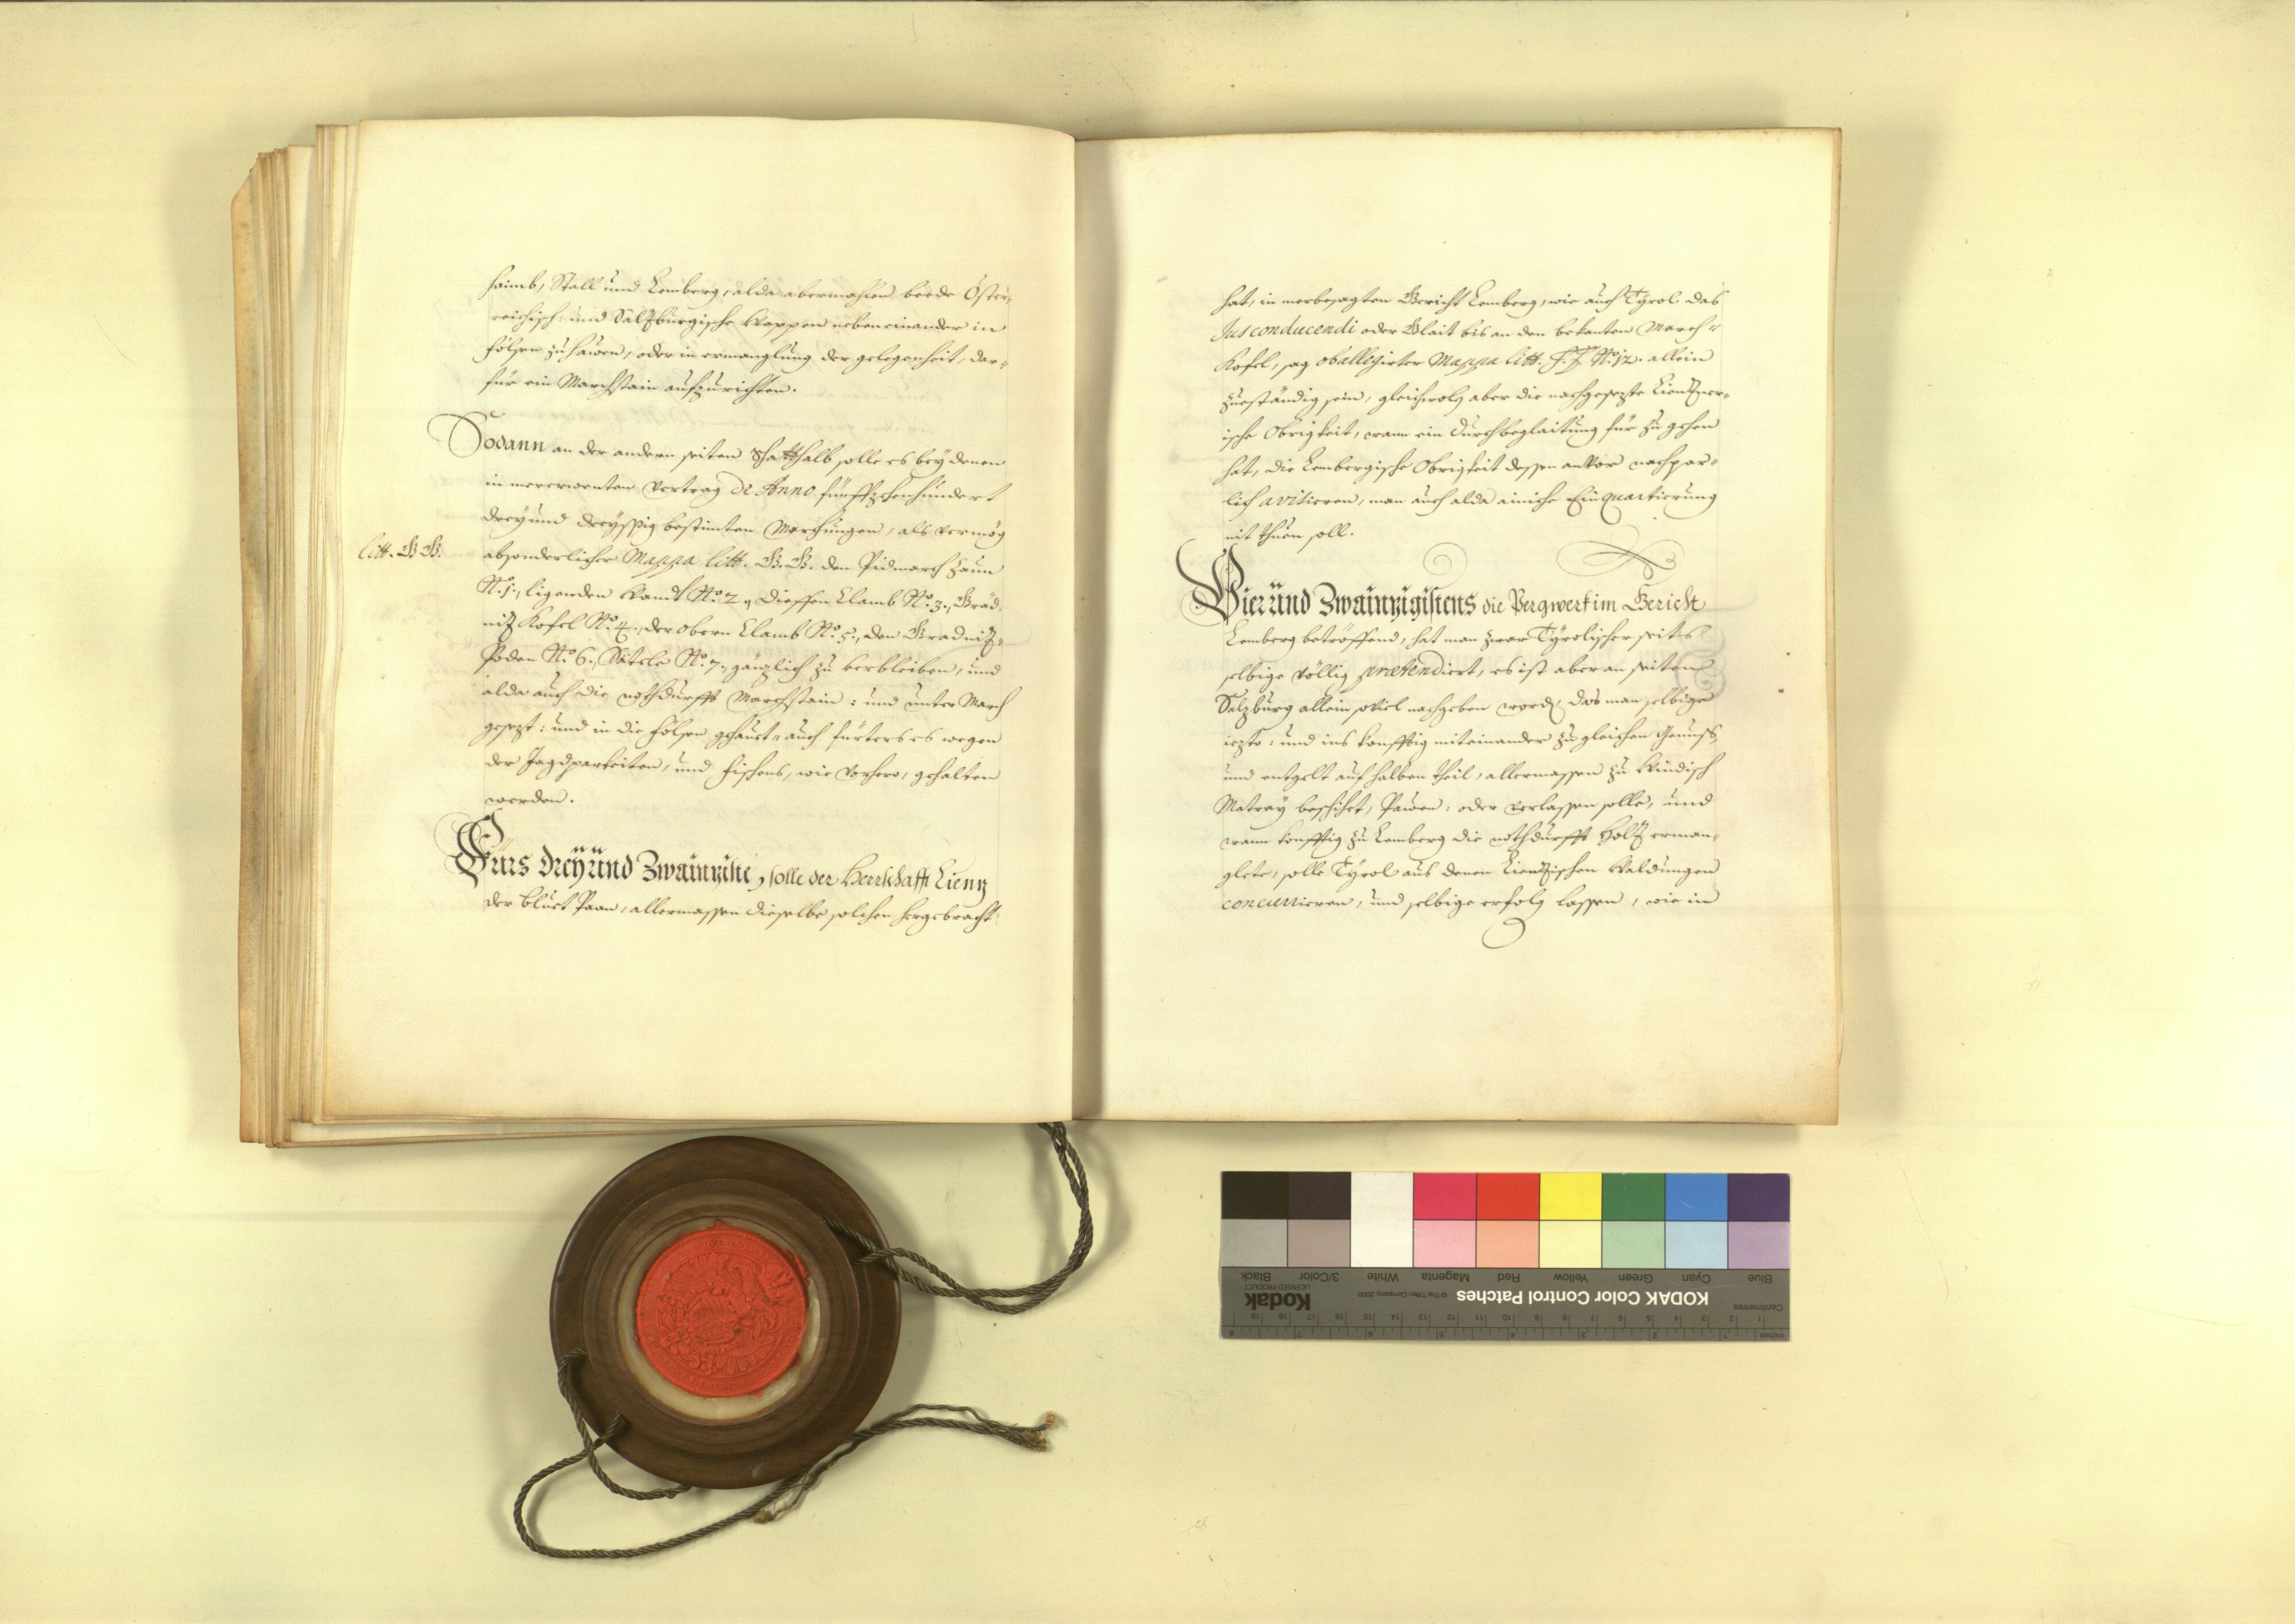 haimb, Stall und Lemberg, alda abermahlen beede Öster-
reichisch: und Salzburgische Wappen nebeneinander in
Fölsen zuhauen, oder in ermanglung der gelegenheit, dar-
für ein Marchstain aufzurichten.
Sodann an der andern seiten Schatthalb solle es bey denen
in mererwenten Vertrag de Anno fünffzehenhundert
dreyund dreyssig bestimten Marchungen, als vermög
litt. G G.
absonderlicher Mappa litt. G. G. den Pidmarch Zaun
N.o 1., ligenden Wandt N.o 2., Dieffen Clamb N.o 3., Grad-
niz Kofel N.o 4., der obern Clamb N.o 5., den Gradniz-
Poden N.o 6., Sätele N.o 7., gänzlich zu verbleiben, und
alda auch die nothdurfft Marchstain: und unter March
gesezt: und in die Fölsen gehauet, auch fürters es wegen
der Jagdparkeiten, und Fischens, wie vorhero, gehalten
werden.
Fürs dreyund Zwainzigiste, solle der Herrschafft Lienz
der Bluet Paan, allermassen dieselbe solchen hergebracht
hat, in merbesagten Gericht Lemberg, wie auch Tyrol das
Jus conducendi oder Glait bis an den bekanten March-
Kofel, sag oballegierter Mappa litt. F. F. N.o 12. allein
zueständig sein, gleichwoln aber die nachgesezte Lienzner-
ische Obrigkeit, wann ein durchbeglaitung für zu gehen
hat, die Lembergische Obrigkeit dessen anvor nachpar-
lich avisieren, man auch alda ainiche Einquartierung
nit thuen soll.
Vierund Zwainzigistens die Pergwerk im Gericht
Lemberg betröffend, hat man zwar Tyrolischer seits
selbige völlig prætendiert, es ist aber an seiten
Salzburg allein soviel nachgeben word, das man selbige
iezto: und ins konfftig miteinander zu gleichen Genuss,
und entgelt auf halben theil, allermassen zu Windisch
Matray beschihet, Pauen: oder verlassen solle, und
wann konfftig zu Lemberg die nothdurfft Holz erman-
glete, solle Tyrol aus denen Lienzischen Waldungen
concurrieren, und selbige erfolg lassen, wie in
Blue Cyan Green Yellow Red Magenta White 3/Color Black
KODAK Color Control Patches
© The Tiffen Company, 2000
Kodak
LICENSED PRODUCT
Centimetres
Inches